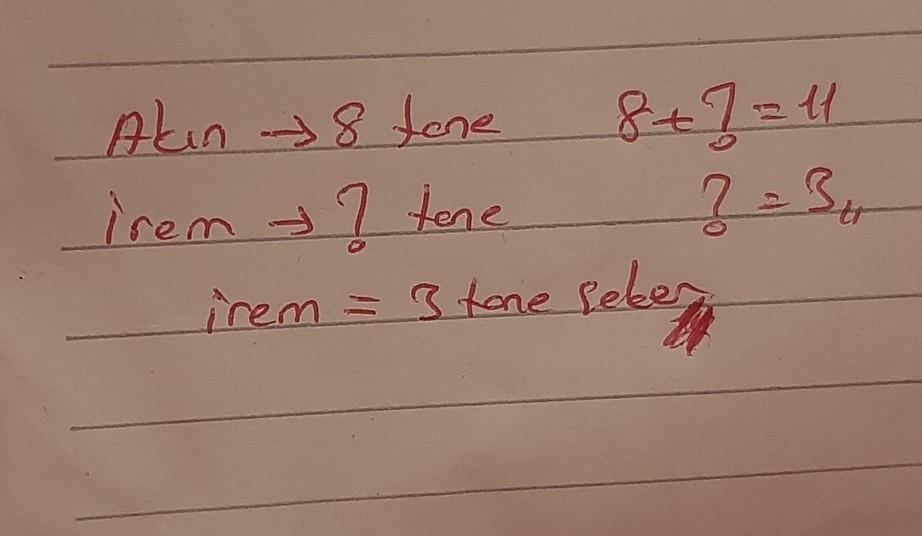 Akın → 8 tane 8+?=11
irem → ? tane ?=3,,
irem = 3 tane şeker